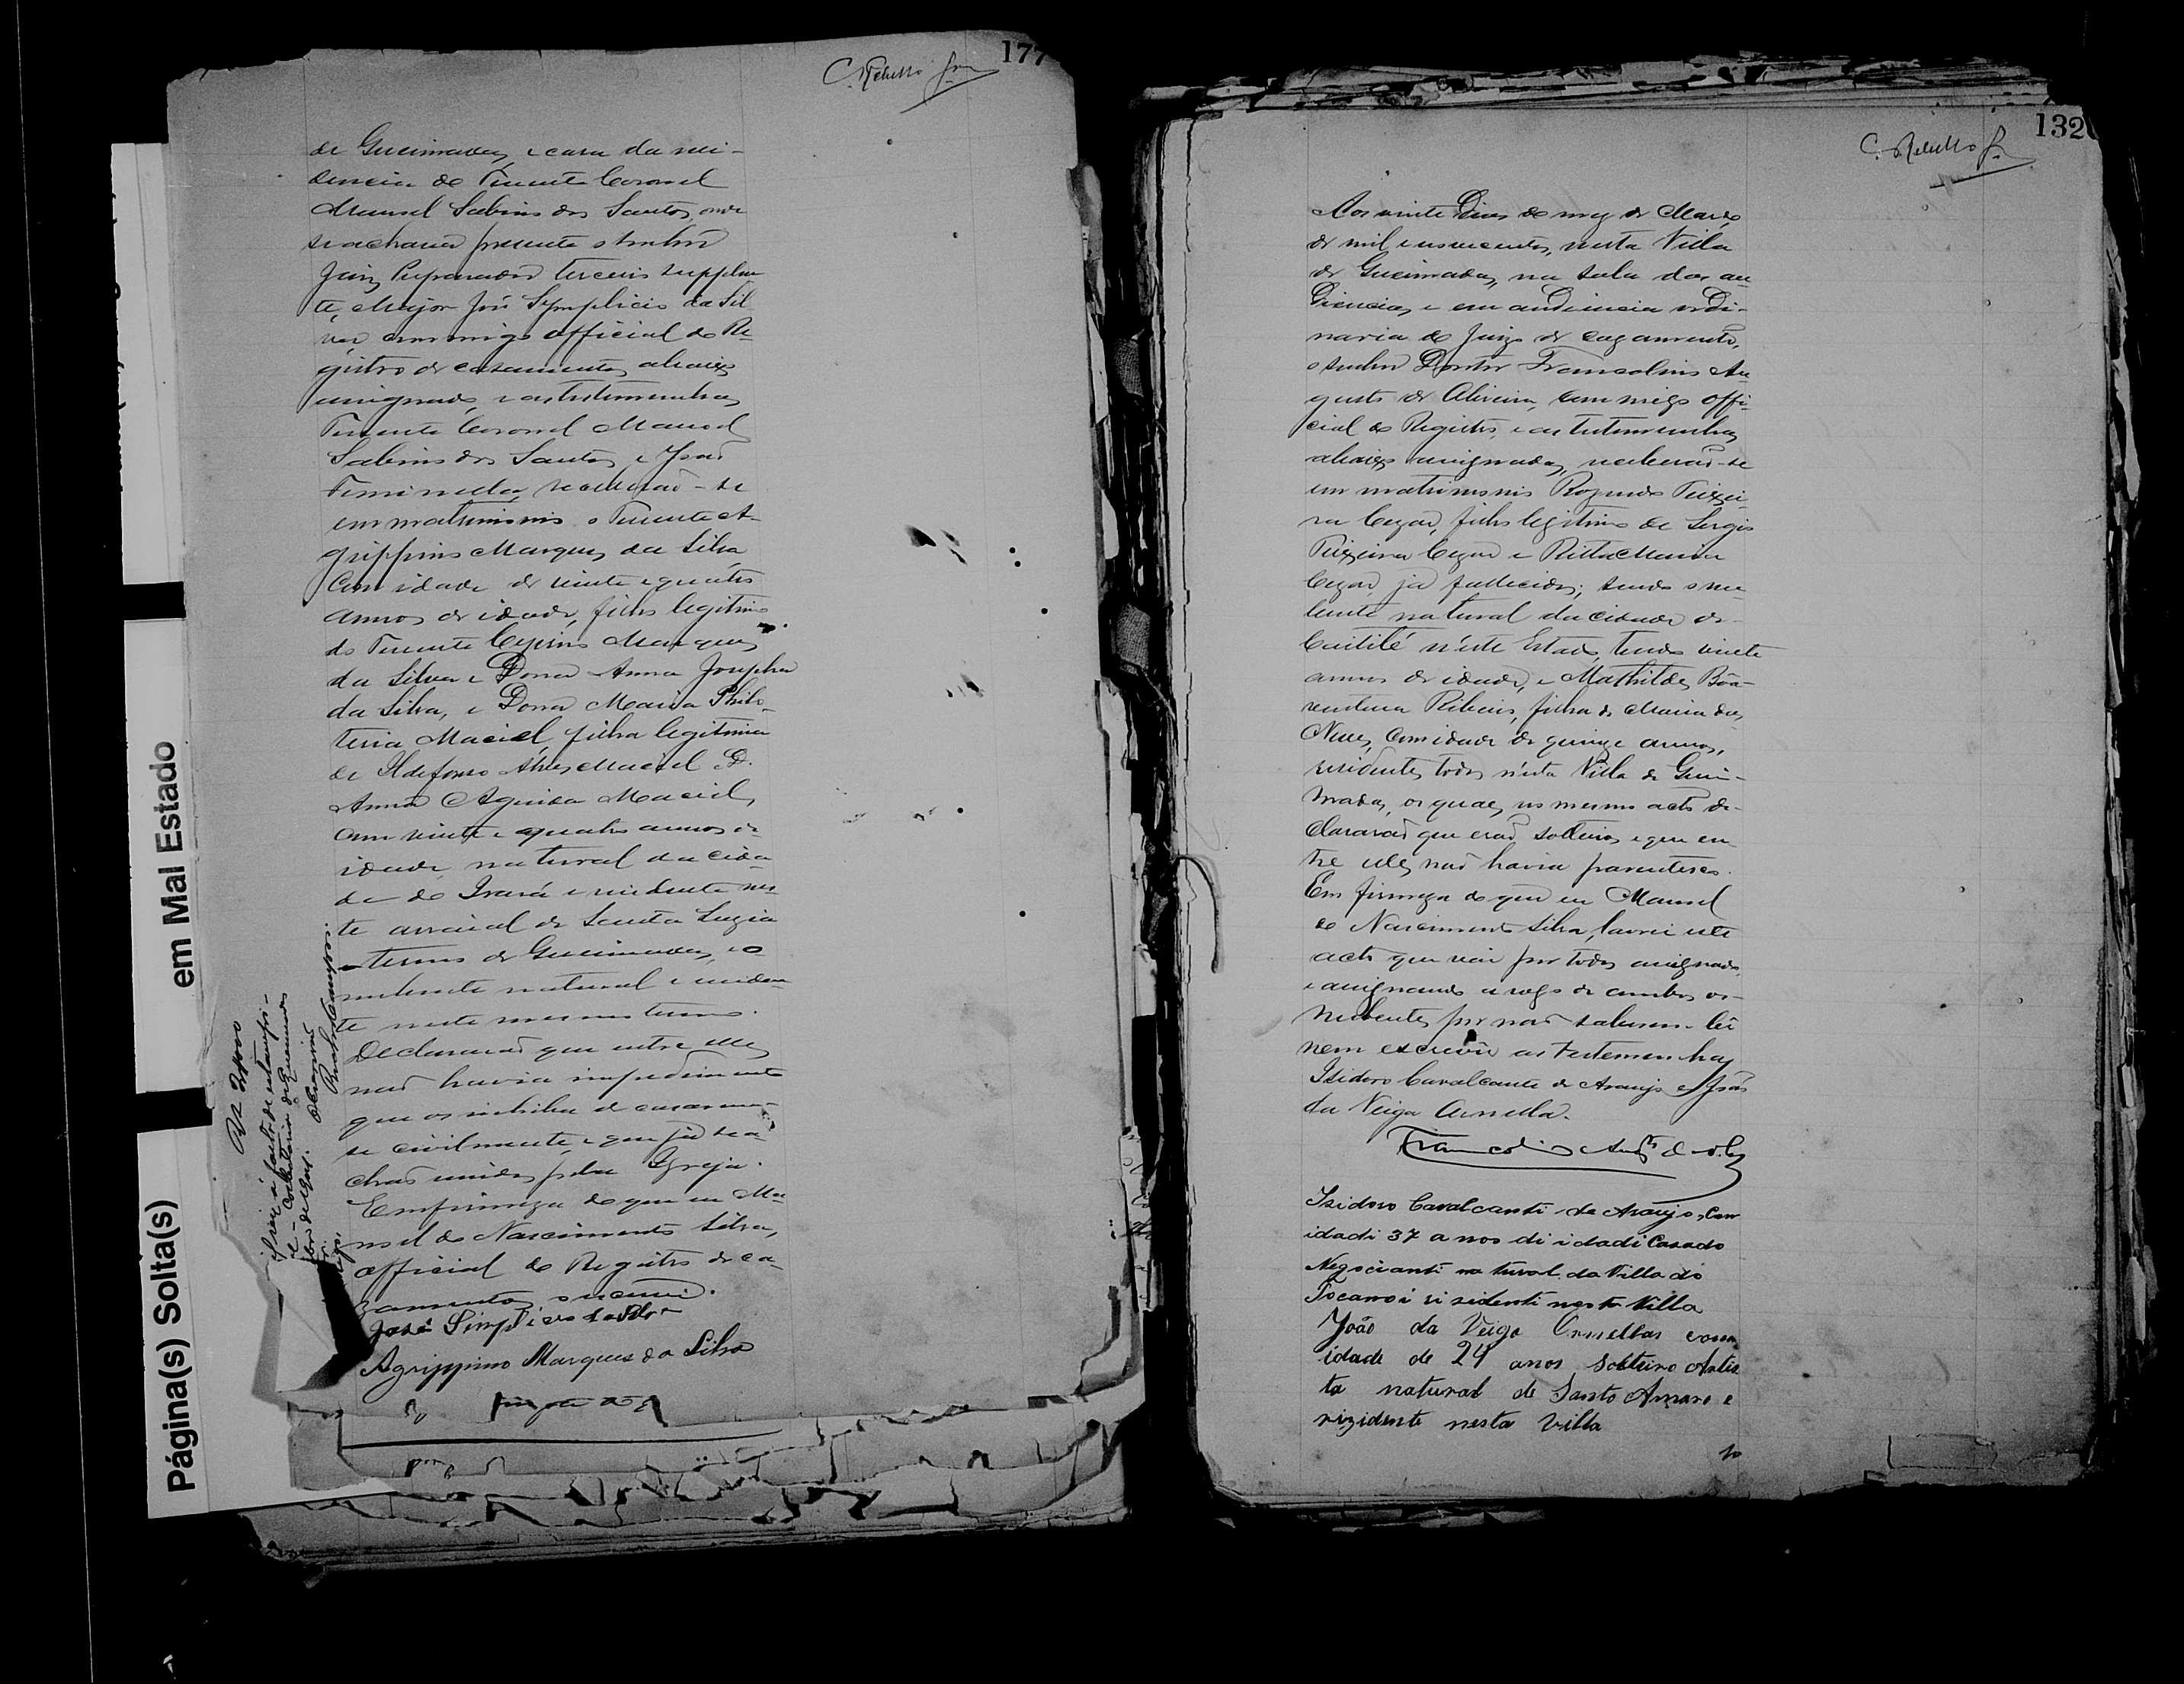 177
C. Rebello Jnr
de Queimadas, e casa da resi-
dencia do Tenente Coronel
Manoel Sabino dos Santos, onde
se achava presente o senhor
Juiz Preparador terceiro supplen
te, Major José Symplicio da Sil
va, commigo official do Re-
gistro de casamentos abaixo
assignado, e as testemunhas
Tenente Coronel Manoel
Sabino dos Santos, e João
receberão-se
em matrimonio o Tenente A-
grippino Marques da Silva
Com idade de vinte e quatro
annos de idade, filho legitimo
do Tenente Cyrino Marques
da Silva e Dona Anna Josepha
da Silva, e Dona Maria Philo-
teria Maciel, filha legitima
de Ildefonso Alves Maciel e D.
Anna Aguida Maciel,
com vinte e quatro annos de
idade natural da cida-
de de Irará e residente nes-
te arraial de Santa Luzia
termo de Queimadas, e o
nubente natural e residen-
te neste mesmo termo.
Declararão que entre elles
não havia impedimento
que os inhiba de casarem-
se civilmente, e que já se a-
chão unidos pela Igreja.
Em firmeza do que eu Ma-
noel do Nascimento Silva,
official do Registro de ca-
zamentos o escrevi.
José Simplicio da Silva
Agrippino Marques da Silva
Rs 2#000
em Mal Estado
Página(s) Solta(s)
132
C. Rebello Jr
Aos vinte Dias do mez de Março
de mil e novecentos, nesta Villa
de Queimadas, na sala das au
Diencias, e em audiencia ordi-
naria do Juizo de cazamento,
o senhor Doutor Francolino Au
gusto de Oliveira, commigo offi-
cial do Registro, e as testemunhas
abaixo assignadas, receberão-se
em matrimonio Rozendo Teixei-
ra Cezar, filho legitimo de Sergio
Teixeira Cezar e Ritta Maria
Cezar, já fallecidos; sendo o nu-
bente natural da cidade de
Caitité n'este Estado, tendo vinte
annos de idade, e Mathildes Bôa-
ventura Ribeiro, filha de Maria das
Neves, com idade de quinze annos,
residentes todos n'esta Villa de Quei-
madas, os quaes, no mesmo acto de-
clararão que erão solteiros e que en-
tre eles não havia parentesco.
Em firmeza do que eu Manoel
do Nascimento Silva, lavrei este
acto que vai por todos assignado
e assignando a rogo de ambos os
nubentes por não saberem ler
nem escrever as testemunhas
Isidoro Cavalcante de Araujo e João
da Veiga Ornellas.
Isidoro Cavalcanti de Araujo, Com
idadi 37 anos di idadi Casado
Negocianti natural da Villa do
Tocanoi risidenti nesta Villa
João da Veiga Ornellas com
idade de 24 anos solteiro Artis
ta natural de Santo Amaro e
rizidente nesta Villa